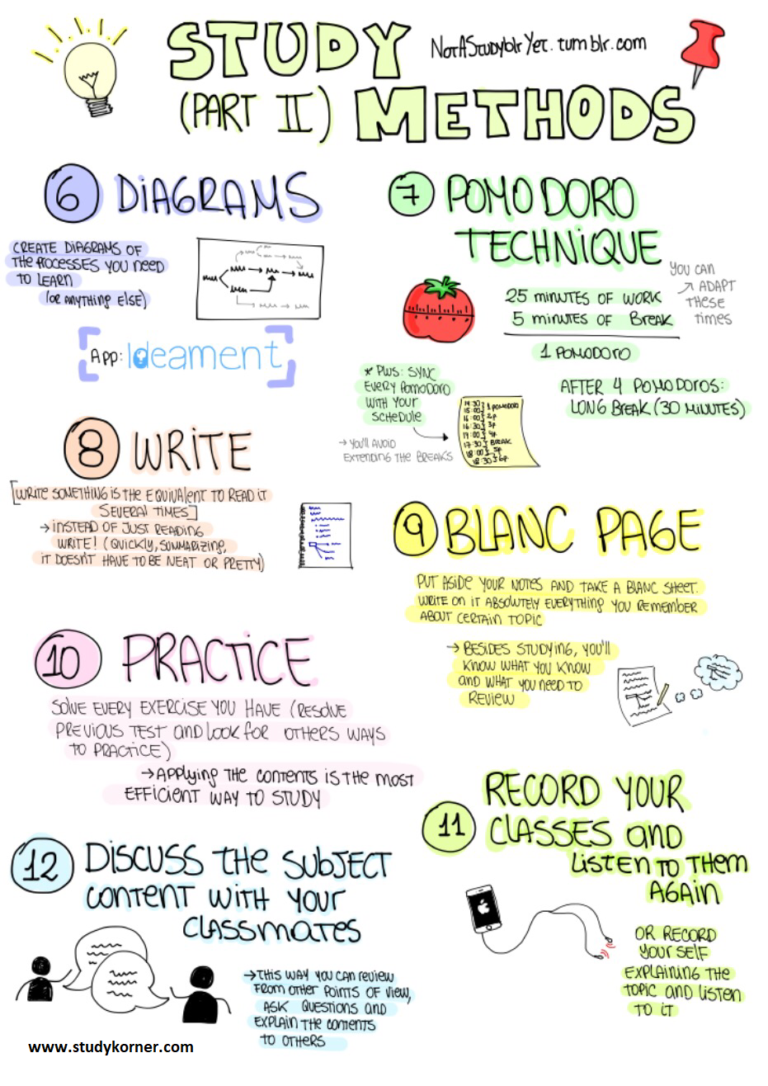 STUDY
NotAStudyblrYet.tumblr.com
(PART II) METHODS
6 DIAGRAMS
CREATE DIAGRAMS OF
THE PROCESSES YOU NEED
TO LEARN
(OR ANYTHING ELSE)
App: Ideament
7 POMODORO
TECHNIQUE
25 MINUTES OF WORK
5 MINUTES OF BREAK
1 POMODORO
YOU CAN
→ ADAPT
THESE
Times
AFTER 4 POMODOROS:
LONG BREAK (30 MINUTES)
* PLUS: SYNC
EVERY POMODORO
WITH YOUR
SCHEDULE
→ YOU'LL AVOID
EXTENDING THE BREAKS
8 WRITE
[WRITE SOMETHING IS THE EQUIVALENT TO READ IT
SEVERAL TIMES]
→ INSTEAD OF JUST READING
WRITE! (QUICKLY, SUMMARIZING,
IT DOESN'T HAVE TO BE NEAT OR PRETTY)
9 BLANC PAGE
PUT ASIDE YOUR NOTES AND TAKE A BLANC SHEET.
WRITE ON IT ABSOLUTELY EVERYTHING YOU REMEMBER
ABOUT CERTAIN TOPIC
→ BESIDES STUDYING, YOU'LL
KNOW WHAT YOU KNOW
AND WHAT YOU NEED TO
REVIEW
10 PRACTICE
SOLVE EVERY EXERCISE YOU HAVE (RESOLVE
PREVIOUS TEST AND LOOK FOR OTHERS WAYS
TO PRACTICE)
→ APPLYING THE CONTENTS IS THE MOST
EFFICIENT WAY TO STUDY
11 RECORD YOUR
CLASSES AND
LISTEN TO THEM
AGAIN
OR RECORD
YOURSELF
EXPLAINING THE
TOPIC AND LISTEN
TO IT
12 DISCUSS THE SUBJECT
CONTENT WITH YOUR
CLASSMATES
→ THIS WAY YOU CAN REVIEW
FROM OTHER POINTS OF VIEW,
ASK QUESTIONS AND
EXPLAIN THE CONTENTS
TO OTHERS
www.studykorner.com